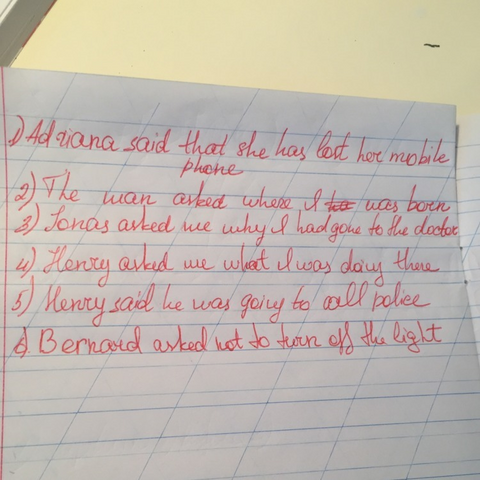 1) Adriana said that she has lost her mobile
phone
2) The man asked where I was born
3) Jonas asked me why I had gone to the doctor
4) Henry asked me what I was doing there
5) Henry said he was going to call police
6). Bernard asked not to turn off the light